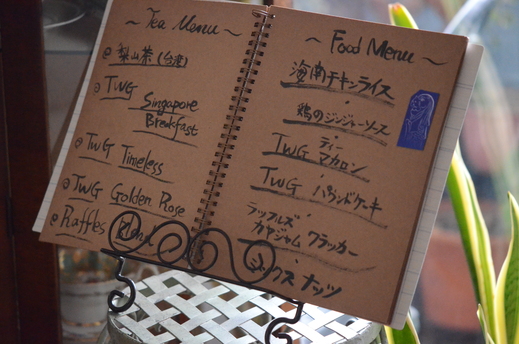 ~ Tea Menu ~
@ 梨山茶 (台湾)
@ TWG
Singapore
Breakfast
@ TWG Timeless
@ TWG Golden Rose
@ Raffles
~ Food Menu ~
海南チキンライス
鶏のジンジャーソース
TWG ティーマカロン
TWG パウンドケーキ
ラッフルズ
カヤジャム クラッカー
ミックスナッツ